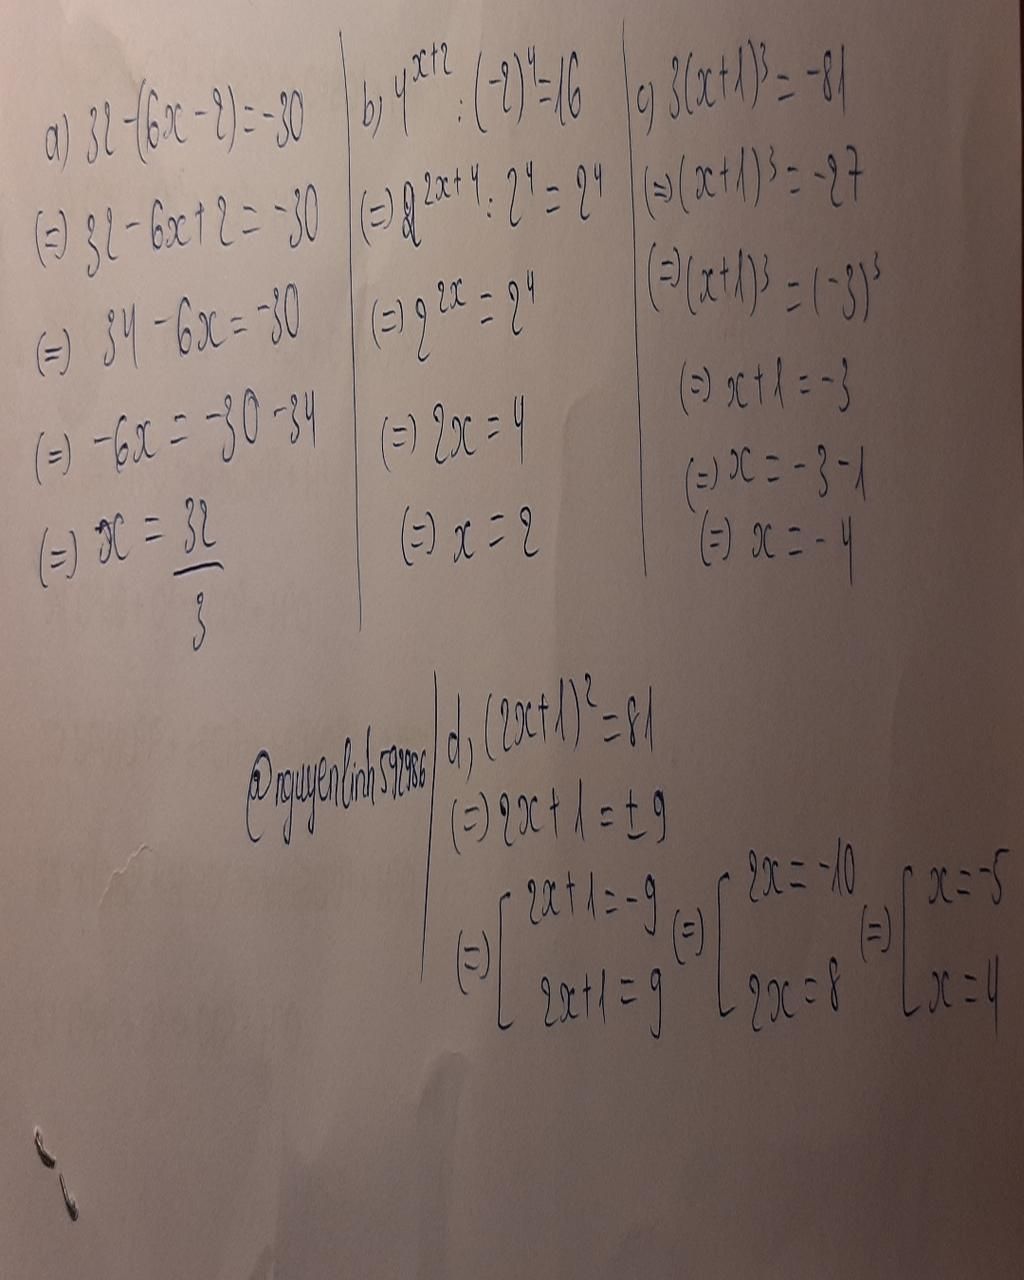 a) 32-(6x-2)=-30
(=) 32-6x+2=-30
(=) 34-6x=-30
(=) -6x=-30-34
(=) x=32/3
b, 4^{x+2}:(-2)^4=16
(=) 2^{2x+4}:2^4=2^4
(=) 2^{2x}=2^4
(=) 2x=4
(=) x=2
c) 3(x+1)^3=-81
(=) (x+1)^3=-27
(=) (x+1)^3=(-3)^3
(=) x+1=-3
(=) x=-3-1
(=) x=-4
@nguyenlinh592986
d, (2x+1)^2=81
(=) 2x+1=±9
(=) [ 2x+1=-9 (=) [ 2x=-10 (=) [ x=-5
2x+1=9 2x=8 x=4